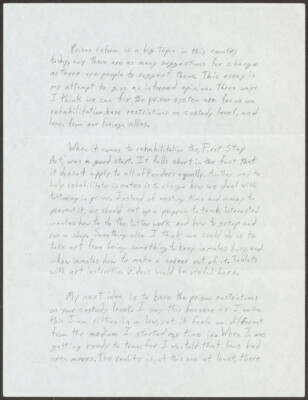 Prison reform is a big topic in this country
today, and there are as many suggestions for change
as there are people to suggest them. This essay is
my attempt to give an informed opinion. Three ways
I think we can fix the prison system are: focus on
rehabilitation, base restrictions on custody level, and
learn from our foreign allies.
When it comes to rehabilitation the "First Step
Act" was a good start. It falls short in the fact that
it doesn't apply to all offenders equally. Another way to
help rehabilitate inmates is to change how we deal with
tattooing in prison. Instead of wasting time and money to
prevent it, we should set up a program to teach interested
inmates how to do the tattoo work and how to setup and
run a shop. Something else I think we could do is to
take art from being something to keep inmates busy, and
show inmates how to make a career out of it. Tablets
with art instruction videos would be useful here.
My next idea is to base the prison restrictions
on your custody levels. I say this because as I write
this I am sitting in a low, yet it feels no different
from the medium I started my time in. When I was
getting ready to transfer I was told that lows had
open moves. The reality is, at this one at least, there